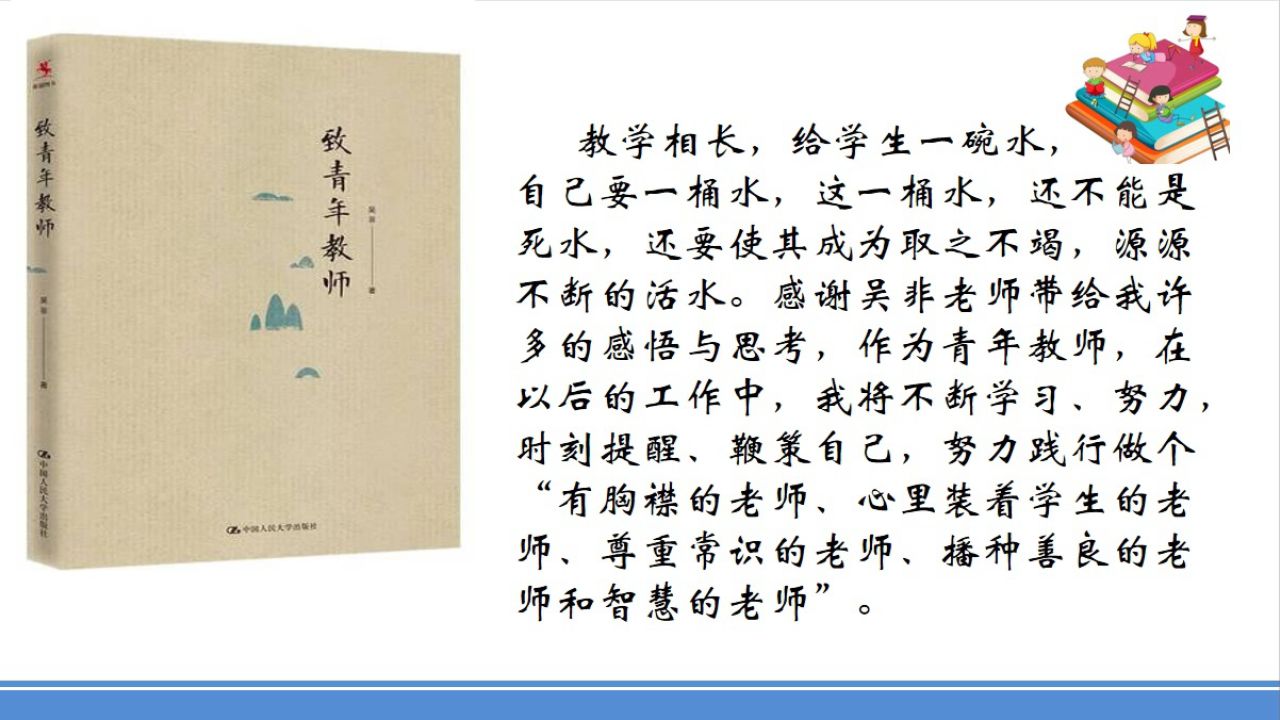 致青年教师
吴非
著
中国人民大学出版社
致青年教师
吴非
著
中国人民大学出版社
教学相长，给学生一碗水，
自己要一桶水，这一桶水，还不能是
死水，还要使其成为取之不竭，源源
不断的活水。感谢吴非老师带给我许
多的感悟与思考，作为青年教师，在
以后的工作中，我将不断学习、努力，
时刻提醒、鞭策自己，努力践行做个
“有胸襟的老师、心里装着学生的老
师、尊重常识的老师、播种善良的老
师和智慧的老师”。